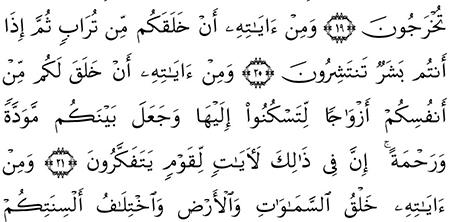 تُخْرَجُونَ ﴿١٩﴾ وَمِنْ ءَايَـٰتِهِۦٓ أَنْ خَلَقَكُم مِّن تُرَابٍ ثُمَّ إِذَآ
أَنتُم بَشَرٌ تَنتَشِرُونَ ﴿٢٠﴾ وَمِنْ ءَايَـٰتِهِۦٓ أَنْ خَلَقَ لَكُم مِّنْ
أَنفُسِكُمْ أَزْوَٰجًا لِّتَسْكُنُوٓا۟ إِلَيْهَا وَجَعَلَ بَيْنَكُم مَّوَدَّةً
وَرَحْمَةً ۚ إِنَّ فِى ذَٰلِكَ لَـَٔايَـٰتٍ لِّقَوْمٍ يَتَفَكَّرُونَ ﴿٢١﴾ وَمِنْ
ءَايَـٰتِهِۦ خَلْقُ ٱلسَّمَـٰوَٰتِ وَٱلْأَرْضِ وَٱخْتِلَـٰفُ أَلْسِنَتِكُمْ